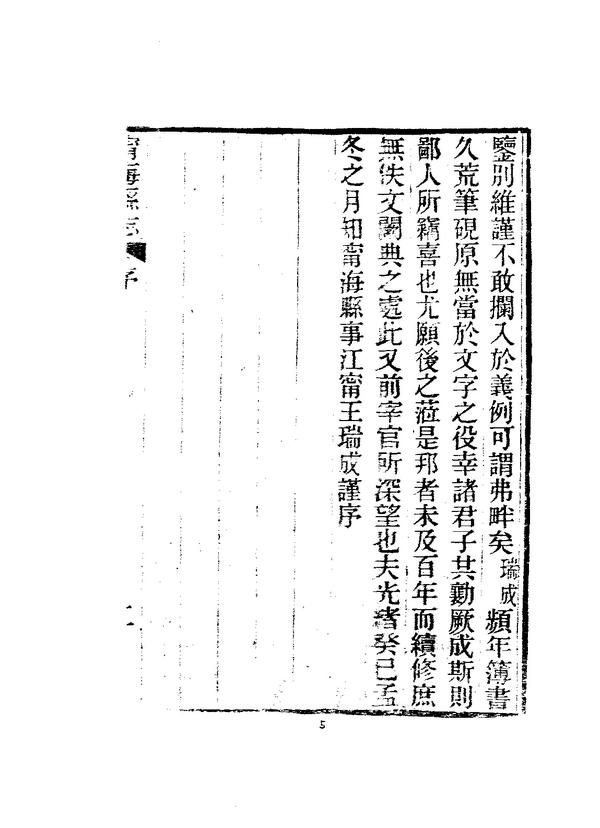 鑒別維謹不敢攔入於義例可謂弗畔矣瑞成頻年簿書
久荒筆硯原無當於文字之役幸諸君子共勷厥成斯則
鄙人所竊喜也尤願後之蒞是邦者未及百年而續修庶
無佚文闕典之處此又前宰官所深望也夫光緒癸巳孟
冬之月知甯海縣事江甯王瑞成謹序
甯海縣志
序
5